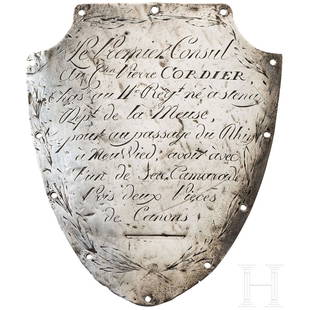 Le Premier Consul
Au C.en Pierre CORDIER,
né a stenay
Dép.t de la Meuse,
pour au passage du Rhin
à Neu Vied, avoir avec
l'un de Ses Camarades
Pris deux Pièces
de Canons.
H